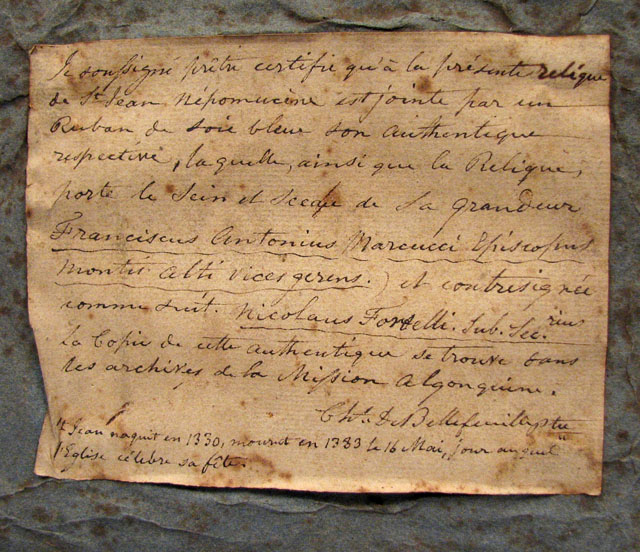 Je soussigné prêtre certifie qu'à la présente relique
de St Jean Népomucène est jointe par un
Ruban de soie bleue son authentique
respective, laquelle, ainsi que la Relique,
porte le Sein et Sceau de Sa grandeur
Franciscus Antonius Marcucci Episcopus
Montis Alti Vicesgerens.) et contresignée
comme suit. Nicolaus Fontelli. Sub. Sec.rius
La Copie de cette authentique se trouve dans
les archives de la Mission Algonquine.
Chs. De Bellefeuille ptre
"St Jean naquit en 1330, mourut en 1383 le 16 Mai, jour auquel"
l'Eglise célèbre sa fête.